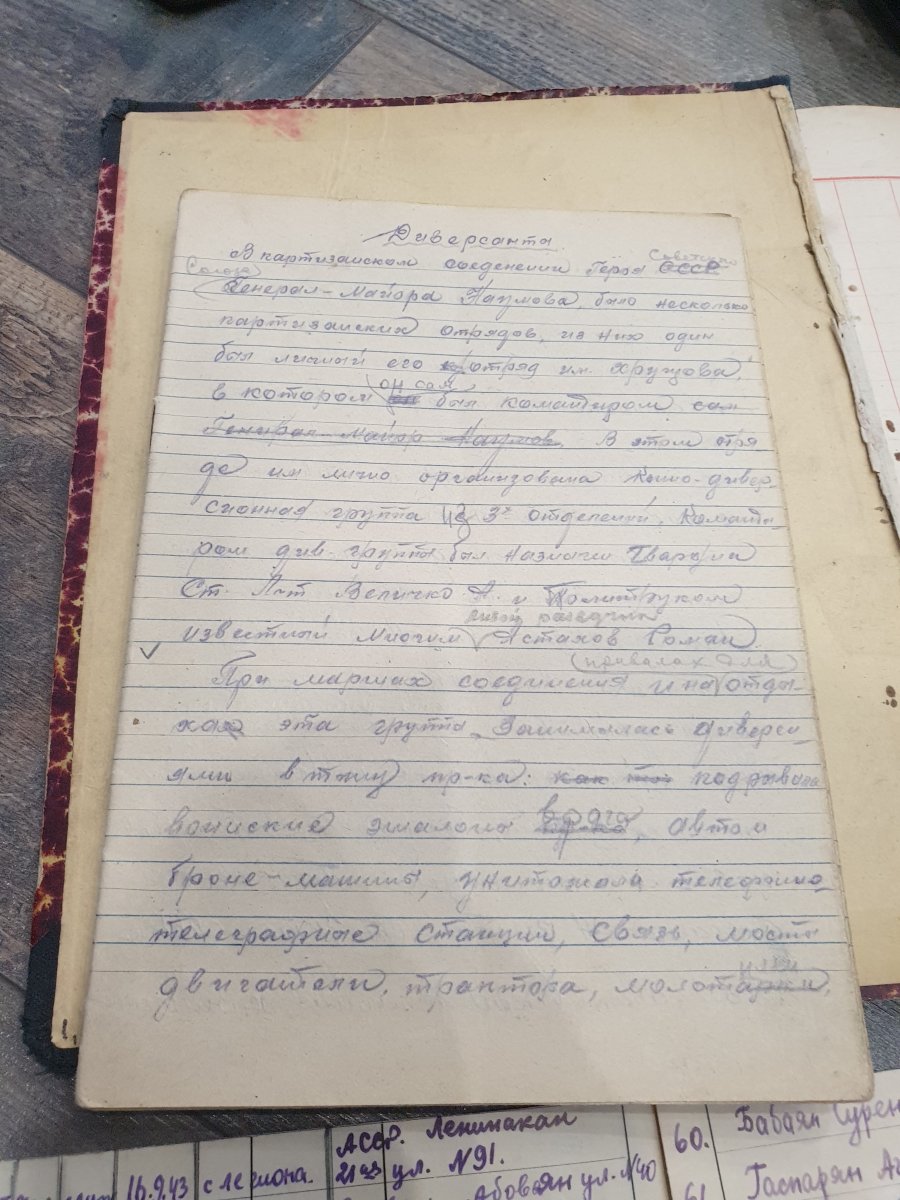 Диверсанта
В партизанском соеденении Героя СССР Советского
Союза
Генерал-Майора Наумова, было несколько
партизанских отрядов, из них один
был личный его отряд им. Хрущова,
в котором он сам был командиром сам
Генерал-Майор Наумов. В этом отря
де им лично организована Конно-дивер
сионная группа из 3х отделений. Команди-
ром див. группы был назначен Гвардии
Ст. Л-нт Величко А. и Политруком
известный многим Астахов Роман
При маршах соединения и на (привалах для) отды-
ха эта группа занималась диверси
ями в тылу пр-ка: как подрывала
воинские эшалоны врага, авто и
броне-машины, унитожала телефоно-
телеграфные станции, связь, мосты
двигатели, трактора, молотилки,
16.9.43 с легиона.
АССР. Ленинакан
ул. N91.
Абовян ул. N40
60. Бабаян Сурен
61. Гаспарян